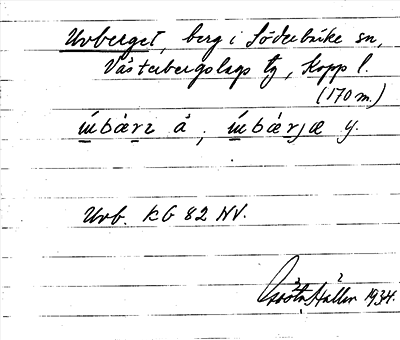 Uvberget, berg i Söderbärke sn,
Västerbergslags tg, Kopp l.
(170 m.)
ùbærz å, ùbærjæ y.
Uvb. KG 82 NV.
Gösta Hallin 1934.